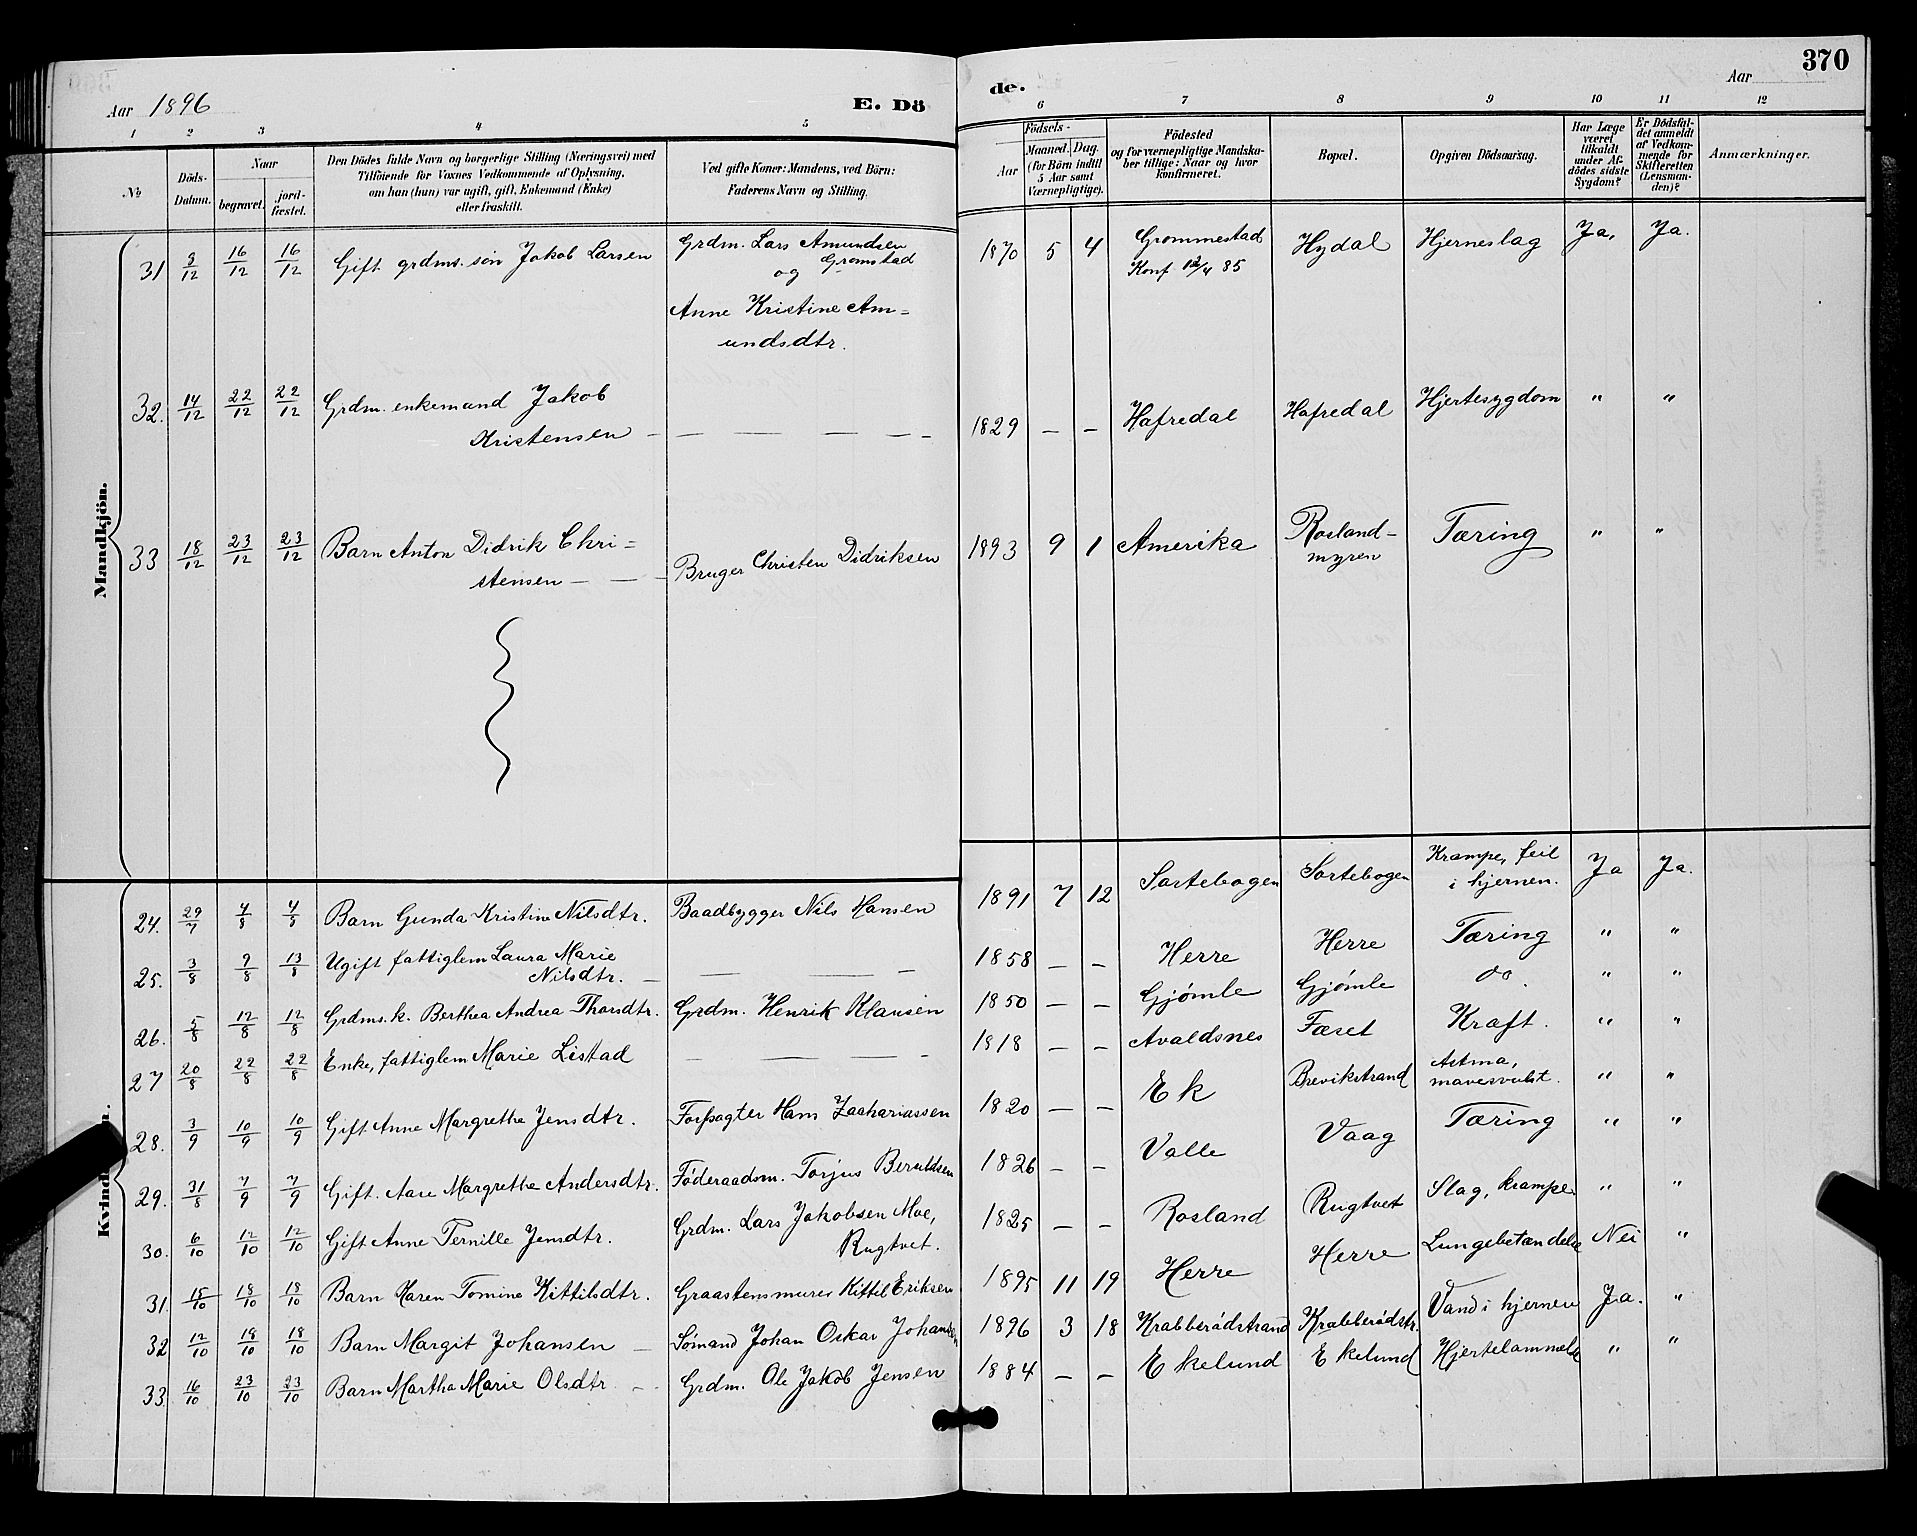 370
Aar 1896
E. Dö
de.
Aar
1 2 3 4 5 6 7 8 9 10 11 12
No
Döds-
Datum.
Naar
begravet.
jord-
fæstet.
Den Dödes fulde Navn og borgerlige Stilling (Næringsvei) med
Tilföiende for Voxnes Vedkommende af Oplysning,
om han (hun) var ugift, gift, Enkemand (Enke)
eller fraskilt.
Ved gifte Koner: Mandens, ved Börn:
Faderens Navn og Stilling.
Födsels-
Aar
Maaned. Dag.
(for Börn indtil
5 Aar samt
Værnepligtige).
Födested
og for værnepligtige Mandska-
ber tillige: Naar og hvor
konfirmeret.
Bopæl.
Opgiven Dödsaarsag.
Har Læge
været
tilkaldt
under Af-
dödes sidste
Sygdom?
Er Dödsfal-
det anmeldt
af Vedkom-
mende for
Skifteretten
(Lensman-
den)?
Anmærkninger.
Mandkjön.
31 3/12 16/12 16/12 Gift grdms. sön Jakob Larsen Grdm. Lars Amundsen 1870 5 4 Grommestad Hydal Hjerneslag Ja, Ja.
Gromstad Konf 12/4 85
og
Anne Kristine Am=
undsdtr.
32. 14/12 22/12 22/12 Grdm. enkemand Jakob 1829 – – Hafredal Hafredal Hjertesygdom " "
Kristensen – – — — – –
33 18/12 23/12 23/12 Barn Anton Didrik Chri= Bruger Christen Didriksen 1893 9 1 Amerika Rosland- Tæring " "
stensen – — – myren
24. 29/7 4/8 4/8 Barn Gunda Kristine Nilsdtr. Baadbygger Nils Hansen 1891 7 12 Sortebogen Sortebogen Krampe, feil Ja Ja.
i hjernen.
25. 3/8 9/8 13/8 Ugift fattiglem Laura Marie 1858 – – Herre Herre Tæring " "
Nilsdtr. – — — –
26. 5/8 12/8 12/8 Grdms. k. Berthea Andrea Thorsdtr. Grdm. Henrik Klausen 1850 – – Gjömle Gjömle do. " "
27 20/8 22/8 22/8 Enke, fattiglem Marie Listad – — — – 1818 – – Avaldsnes Fæset Kraft. " "
28. 3/9 10/9 10/9 Gift Anne Margrethe Jensdtr. Forpagter Hans Zachariassen 1820 – – Ek Brevikstrand Astma, " "
mavesvulst.
29. 31/8 7/9 7/9 Gift. Aase Margrethe Andersdtr. Föderaadsm. Torjus Beruldsen 1826 – – Valle Vaag Tæring " "
30. 6/10 12/10 12/10 Gift Anne Pernille Jensdtr. Grdm. Lars Jakobsen Moe, 1825 – – Rosland Rugtvet Slag, krampe. " "
Rugtvet.
31. 15/10 18/10 18/10 Barn Karen Tomine Kittilsdtr. Graastensmurer Kittil Eriksen 1895 11 19 Herre Herre Lungebetændelse Nei "
32 12/10 18/10 18/10 Barn Margit Johansen – Sömand Johan Oskar Johansen 1896 3 18 Krabberödstrand Krabberödstr. Vand i hjernen Ja. "
33. 16/10 23/10 23/10 Barn Martha Marie Olsdtr. – – Grdm. Ole Jakob Jensen 1884 – – Ekelund Ekelund Hjertelammelse " "